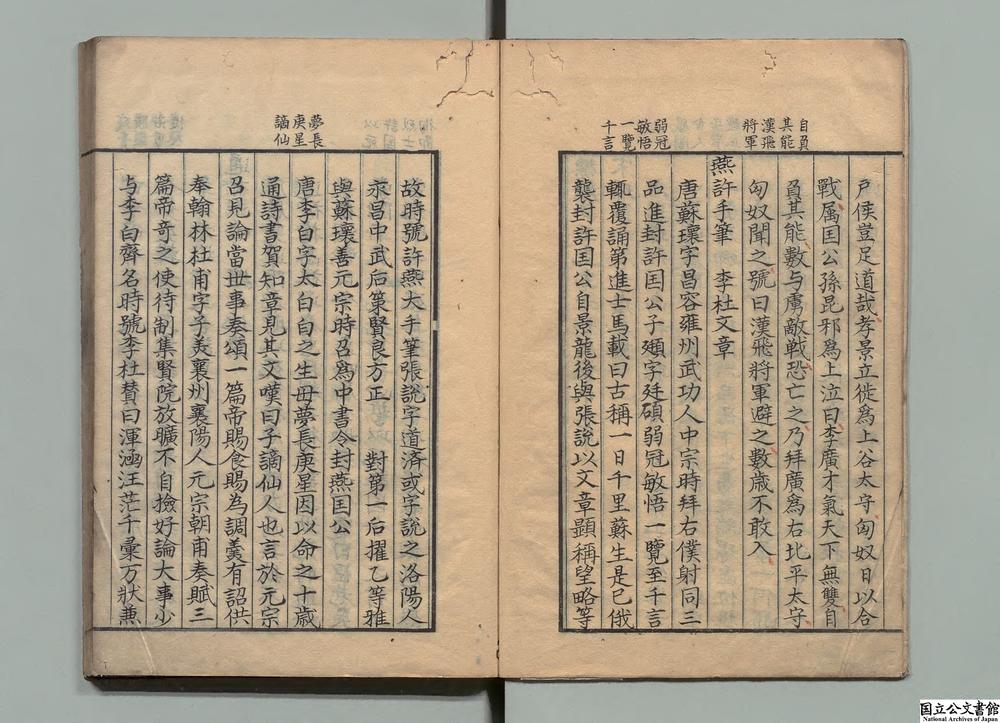 自負
其能
漢飛
將軍
弱冠
敏悟
一覽
千言
戶侯豈足道哉孝景立徙爲上谷太守匈奴日以合
戰属囯公孫昆邪爲上泣曰李廣才氣天下無雙自
負其能數与虜敵戦恐亡之乃拜廣爲右北平太守
匈奴聞之號曰漢飛將軍避之數歳不敢入
燕許手筆　李杜文章
唐蘇瓌字昌容雍州武功人中宗時拜右僕射同三
品進封許囯公子頲字廷碩弱冠敏悟一覽至千言
輒覆誦第進士馬載曰古稱一日千里蘇生是已俄
襲封許囯公自景龍後與張說以文章顯稱望略等
夢長
庚星
謫仙
故時號許燕大手筆張説字道済或字說之洛陽人
永昌中武后策賢良方正　對第一后擢乙等雅
與蘇瓌善元宗時召爲中書令封燕囯公
唐李白字太白白之生母夢長庚星因以命之十歳
通詩書賀知章見其文嘆曰子謫仙人也言於元宗
召見論當世事奏頌一篇帝賜食賜為調羹有詔供
奉翰林杜甫字子美襄州襄陽人元宗朝甫奏賦三
篇帝奇之使待制集賢院放曠不自撿好論大事少
与李白齊名時號李杜賛曰渾涵汪茫千彙万狀兼
国立公文書館
National Archives of Japan